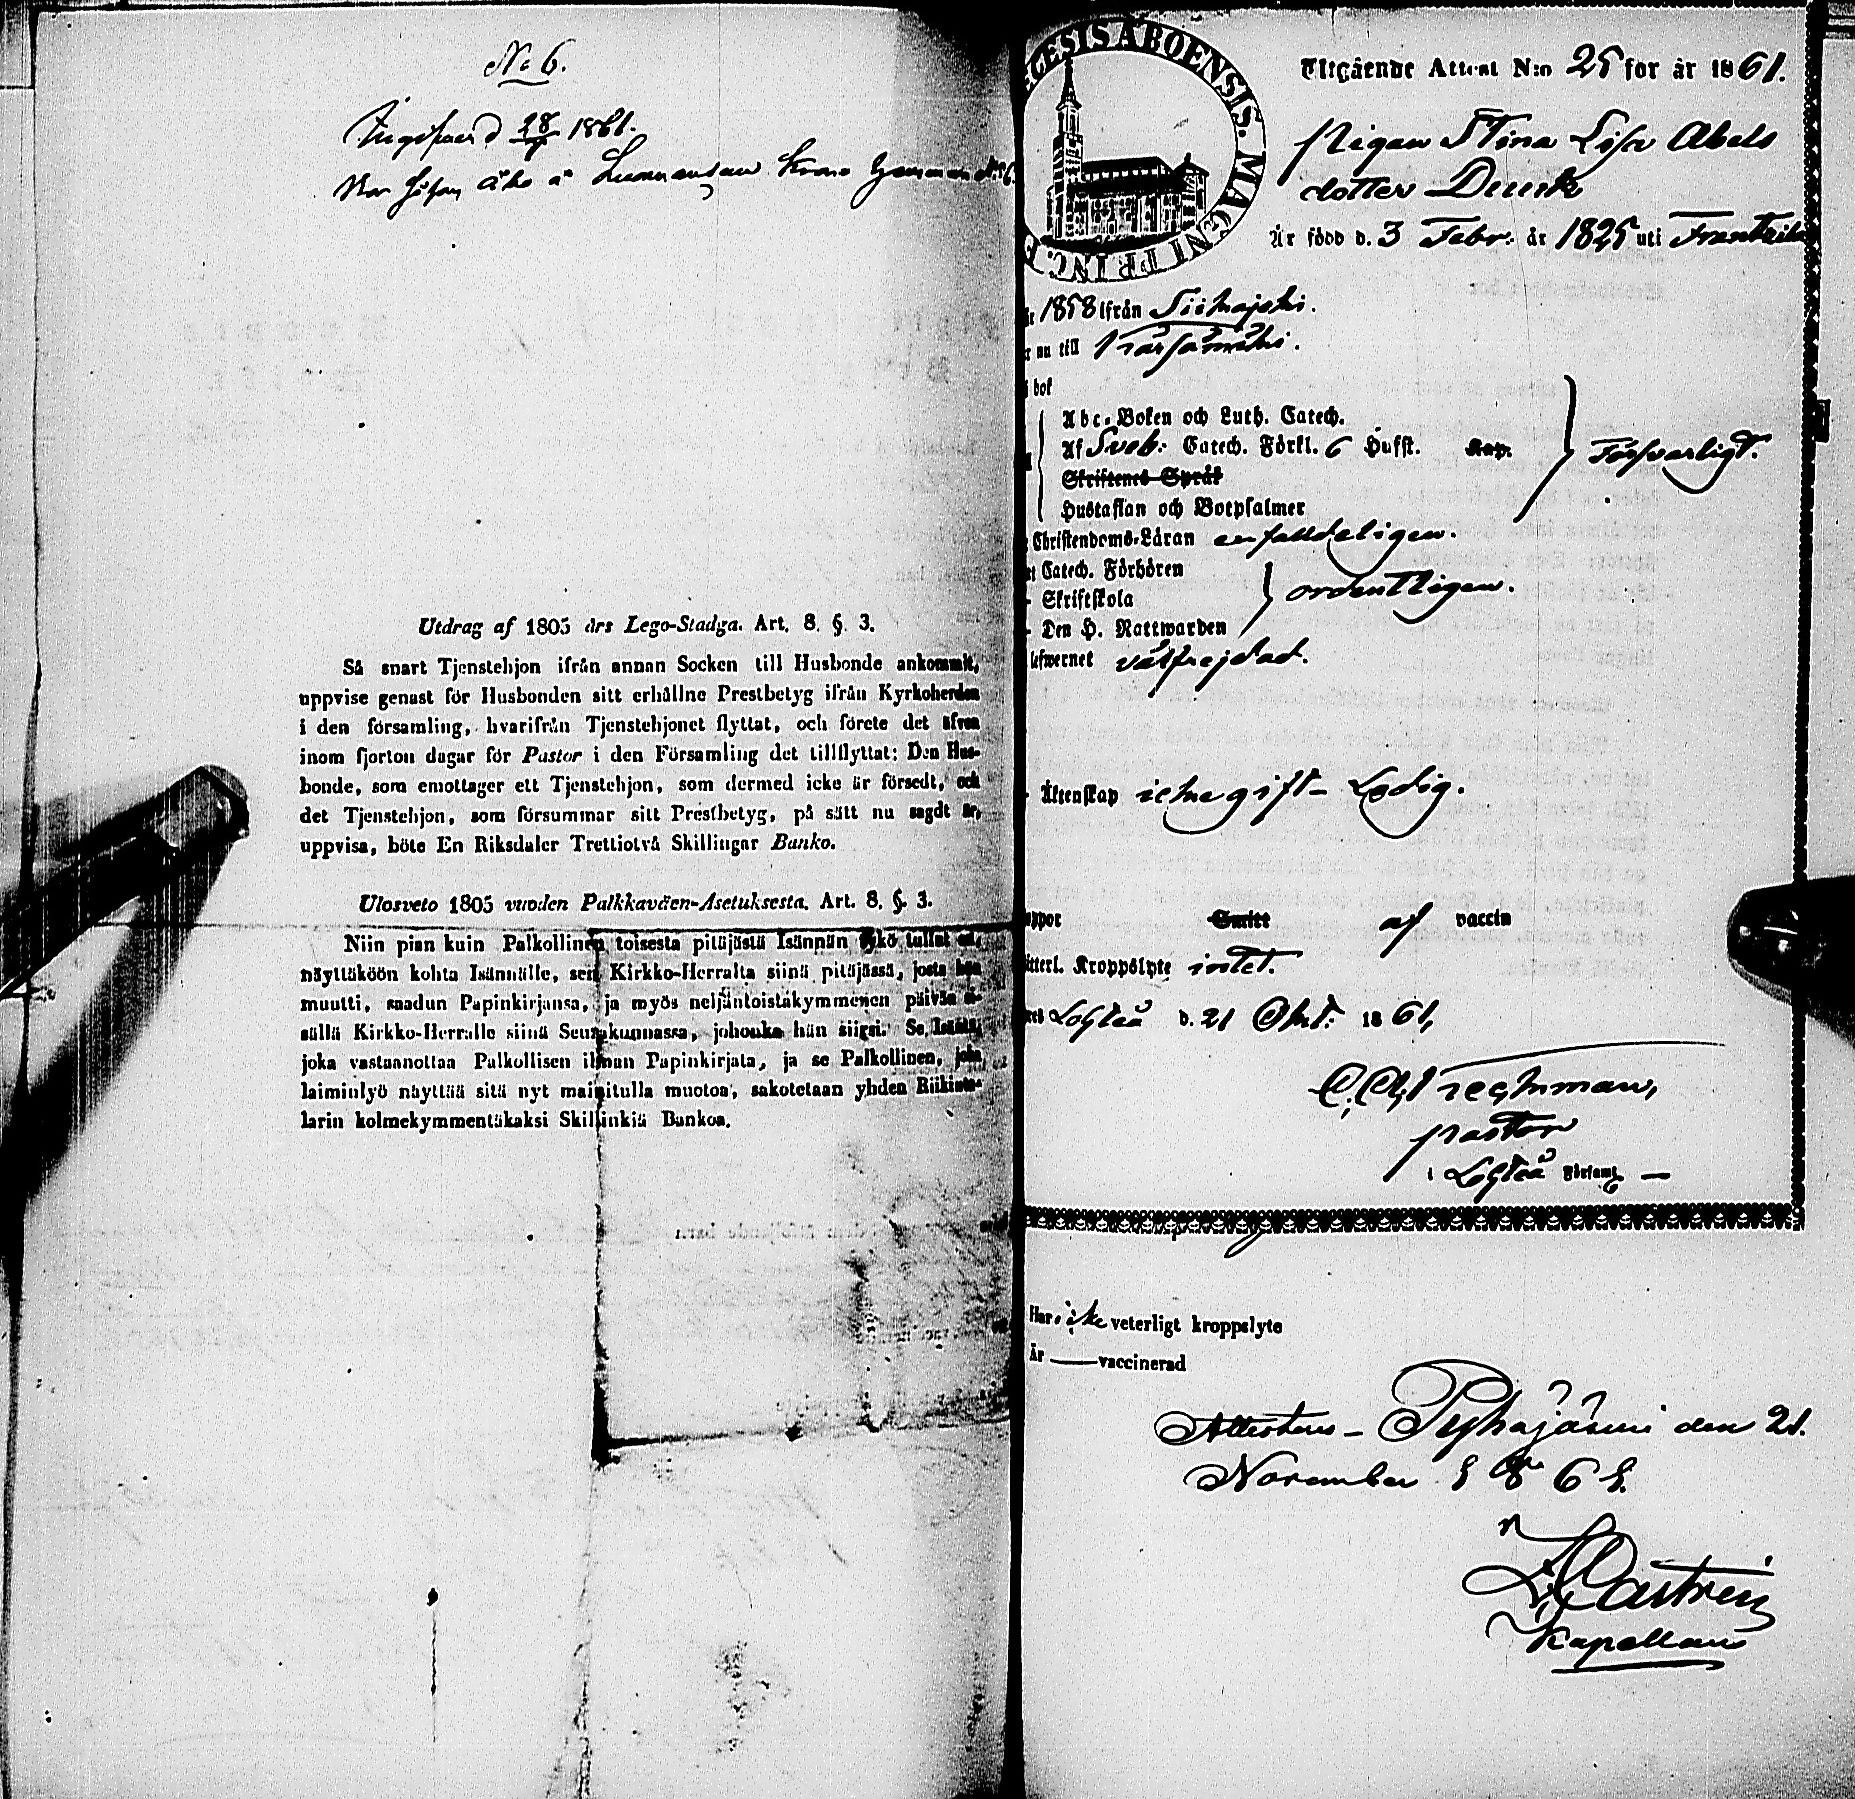 No 6.
d 28 1861.
Utdrag af 1805 års Lego-Stadga. Art. 8. §. 3.
Så snart Tjenstehjon ifrån annan Socken till Husbonde ankommit,
uppvise genast för Husbonden sitt erhållne Prestbetyg ifrån Kyrkoherden
i den församling, hvarifrån Tjenstehjonet flyttat, och förete det äfven
inom fjorton dagar för Pastor i den Församling det tillflyttat: Den Hus-
bonde, som emottager ett Tjenstehjon, som dermed icke är försedt, och
det Tjenstehjon, som försummar sitt Prestbetyg, på sätt nu sagdt är,
uppvisa, böte En Riksdaler Trettiotvå Skillingar Banko.
Ulosveto 1805 vuoden Palkkaväen-Asetuksesta. Art. 8. §. 3.
Niin pian kuin Palkollinen toisesta pitäjästä Isännän tykö tullut on,
näyttäköön kohta Isännälle, sen Kirkko-Herralta siinä pitäjässä, josta hän
muutti, saadun Papinkirjansa, ja myös neljäntoistäkymmenen päivän si-
sällä Kirkko-Herralle siinä Seurakunnassa, johonka hän siirsi. Se Isäntä,
joka vastaanottaa Palkollisen ilman Papinkirjata, ja se Palkollinen, joka
laiminlyö näyttää sitä nyt mainitulla muotoa, sakotetaan yhden Riikinta-
larin kolmekymmentäkaksi Skillinkiä Bankoa.
ECESIS ABOENSIS. MAGNI PRINC. F
Utgående Attest N:o 25 för år 1861.
Pigan Stina Lisa Abels
dotter Dunk
Är född d. 3 Febr. år 1825 uti
år 1858 ifrån Siikajoki.
nu till Kärsämäki.
bok
Abc-Boken och Luth. Catech.
Af Sveb. Catech. Förkl. 6 Hufst. Kap.
Skriftenes Språk
Hustaflan och Botpsalmer
Försvarligt.
Christendoms-Läran enfalldeligen.
Catech. Förhören
Skriftskola
Den H. Nattwarden
ordentligen.
lefwernet välfrejdad.
Äktenskap icke gift - Ledig.
koppor Smitt af vaccin
Kroppslyte intet.
Lochteå d. 21 Okt. 1861,
pastor
i Lochteå Församl.
Har icke veterligt kroppslyte
Är — vaccinerad
Attesteras - Pyhäjärvi den 21.
November 1861.
Castrén
Kapellan